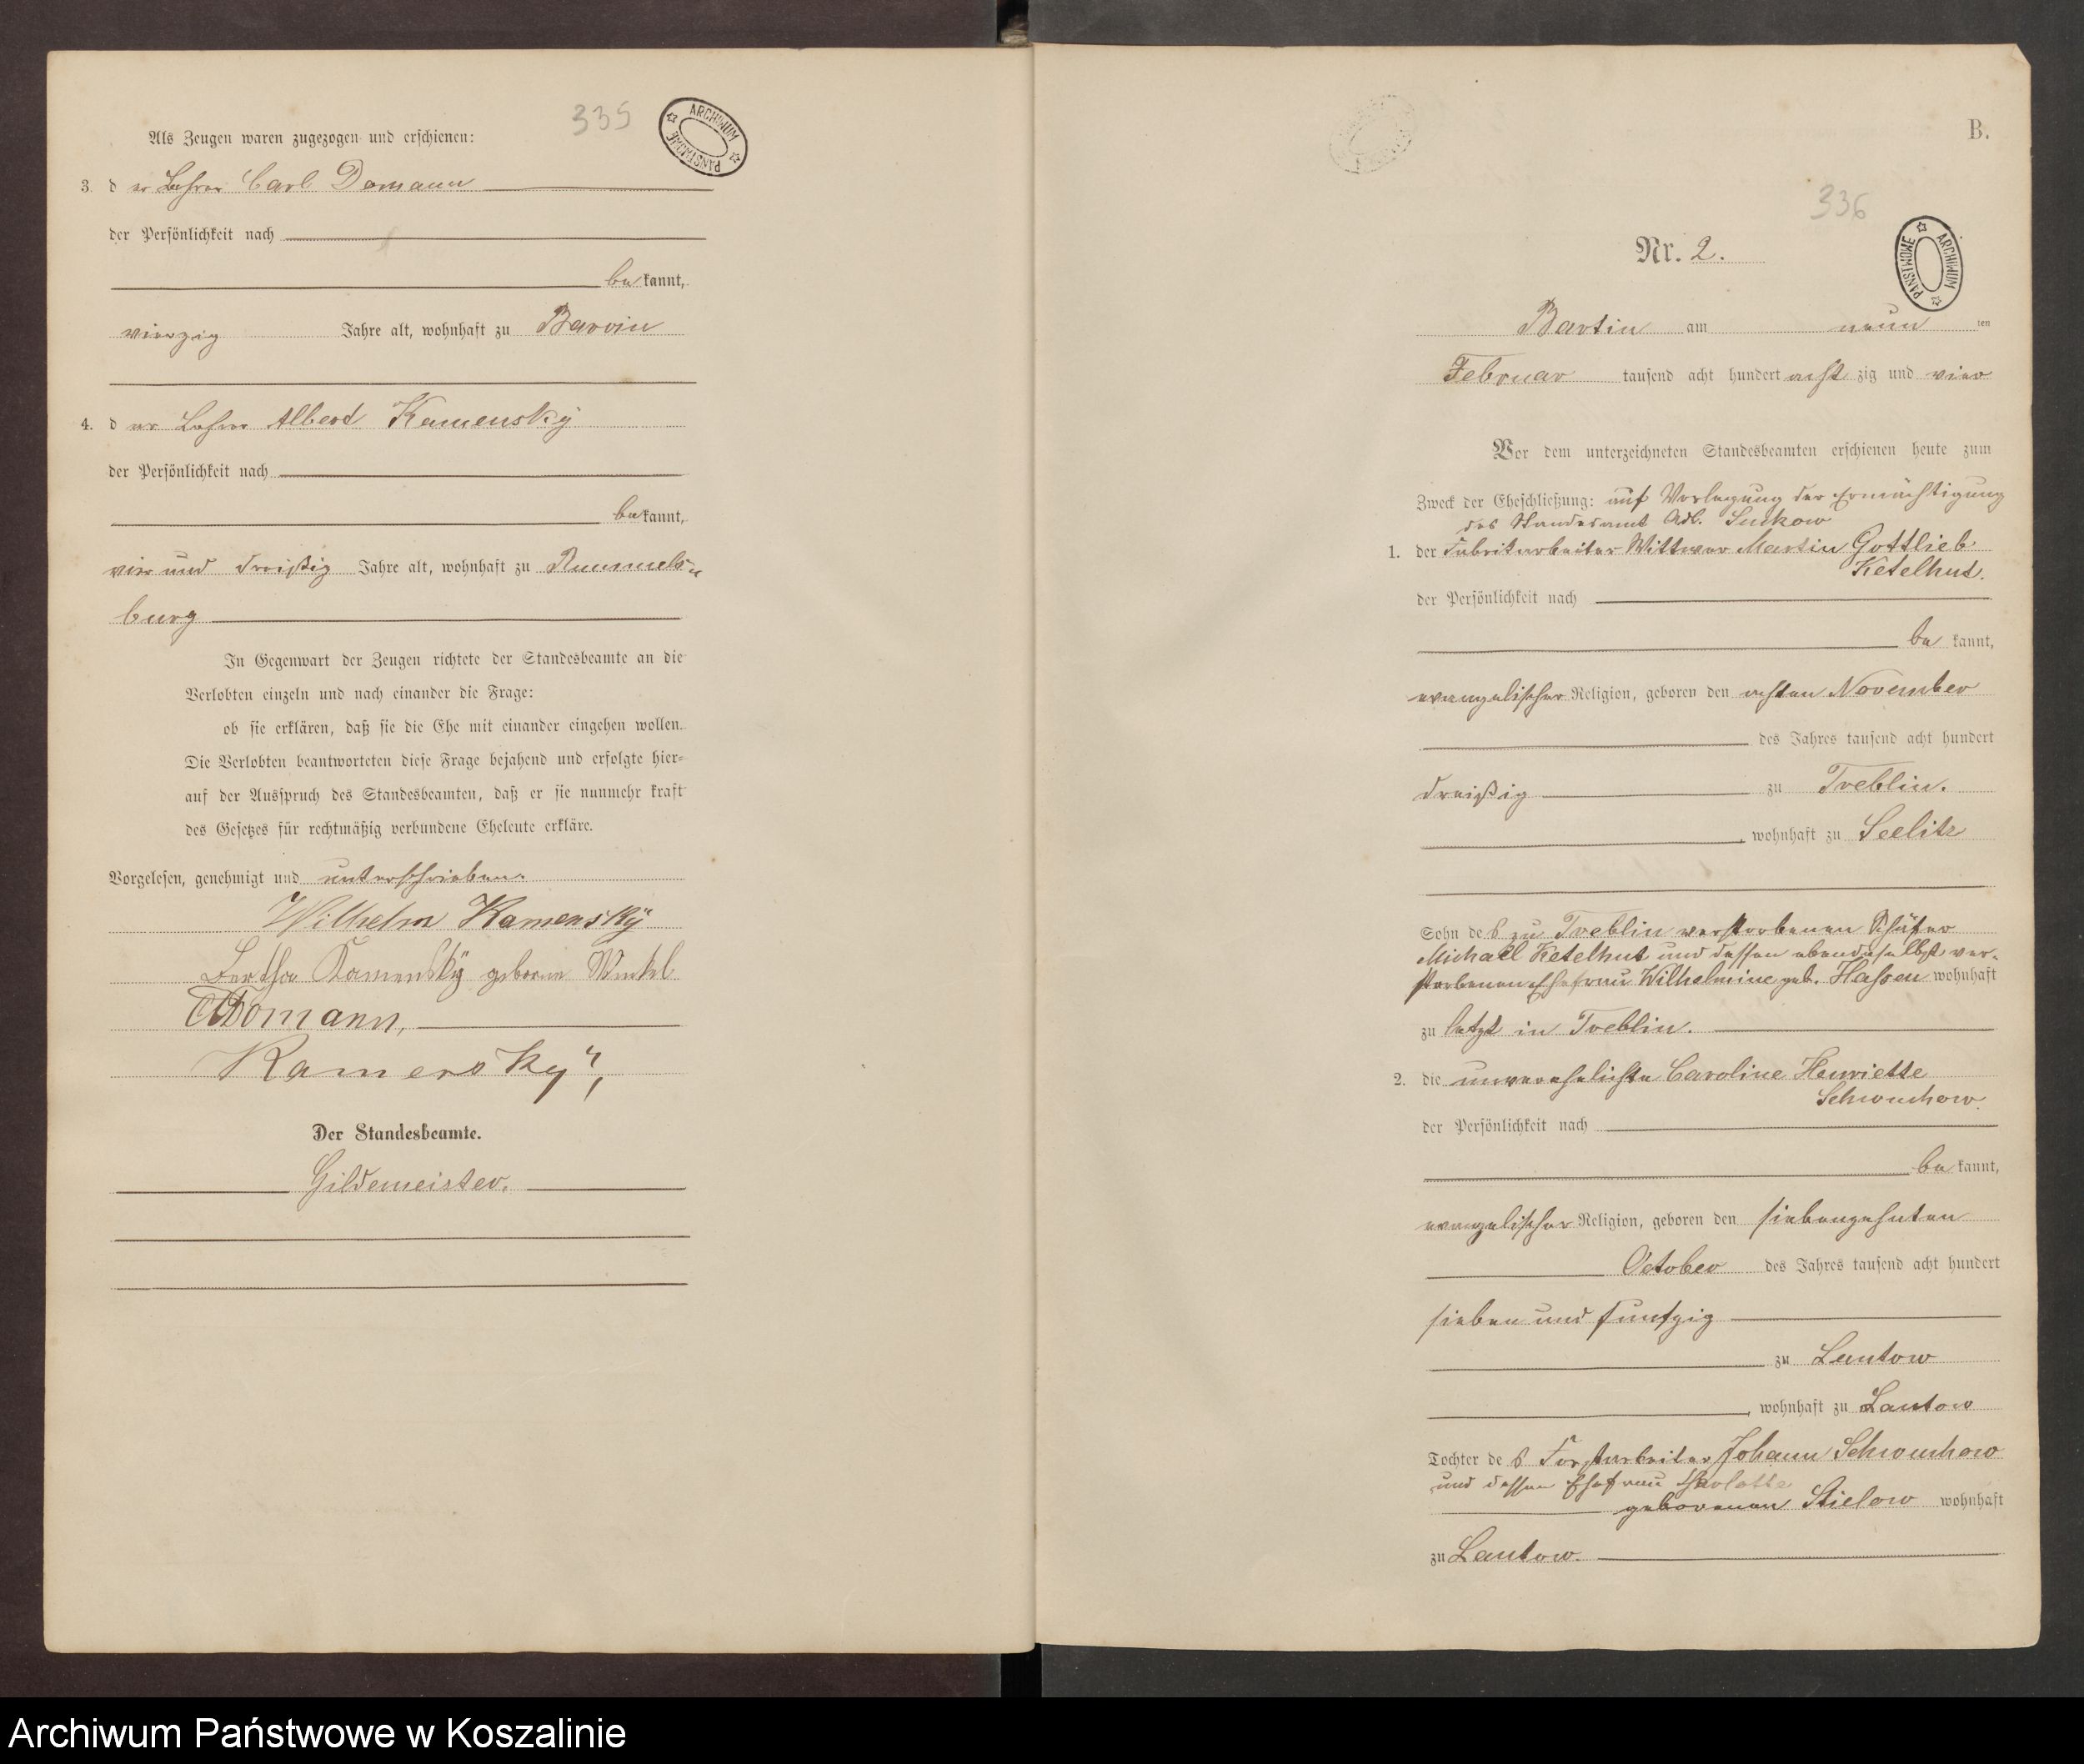 335
ARCHIWUM PAŃSTWOWE
Als Zeugen waren zugezogen und erschienen:
3. der Lehrer Carl Domann
der Persönlichkeit nach
bekannt,
vierzig Jahre alt, wohnhaft zu Barvin
4. der Lehrer Albert Kamensky
der Persönlichkeit nach
bekannt,
vier und dreißig Jahre alt, wohnhaft zu Rummels-
burg
In Gegenwart der Zeugen richtete der Standesbeamte an die
Verlobten einzeln und nach einander die Frage:
ob sie erklären, daß sie die Ehe mit einander eingehen wollen.
Die Verlobten beantworteten diese Frage bejahend und erfolgte hier-
auf der Ausspruch des Standesbeamten, daß er sie nunmehr kraft
des Gesetzes für rechtmäßig verbundene Eheleute erkläre.
Vorgelesen, genehmigt und unterschrieben.
Wilhelm Kamensky
Bertha Kamensky geborene
Domann,
Kamensky,
Der Standesbeamte.
Gildemeister.
B.
336
ARCHIWUM PAŃSTWOWE
Nr. 2.
Bartin am neun ten
Februar tausend acht hundert achtzig und vier
Vor dem unterzeichneten Standesbeamten erschienen heute zum
Zweck der Eheschließung: auf Vorlegung der Ermächtigung
des Standesamt Adl. Suckow
1. der Fabrikarbeiter Wittwer Martin Gottlieb
Ketelhut.
der Persönlichkeit nach
bekannt,
evangelischer Religion, geboren den achten November
des Jahres tausend acht hundert
dreißig zu Treblin.
, wohnhaft zu Seelitz
Sohn des zu Treblin verstorbenen Schäfer
Michael Ketelhut und dessen ebendaselbst ver-
storbenen Ehefrau Wilhelmine geb. Hassen wohnhaft
zu letzt in Treblin.
2. die unverehelichte Caroline Henriette
Schwuchow.
der Persönlichkeit nach
bekannt,
evangelischer Religion, geboren den siebenzehnten
October des Jahres tausend acht hundert
sieben und funfzig
zu Lantow
, wohnhaft zu Lantow
Tochter des Forstarbeiter Johann Schwuchow
und dessen Ehefrau Charlotte
geborenen Stielow wohnhaft
zu Lantow.
Archiwum Państwowe w Koszalinie